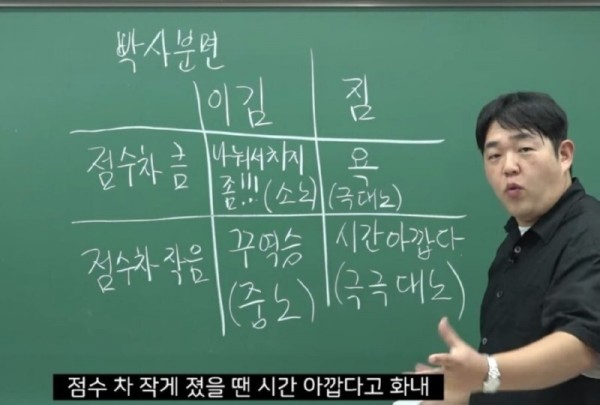 박사분면
이김 짐
점수차 큼 나눠서차지 욕
좀!!! (소노) (극대노)
점수차 작음 꾸역승 시간아깝다
(중노) (극극대노)
점수 차 작게 졌을 땐 시간 아깝다고 화내